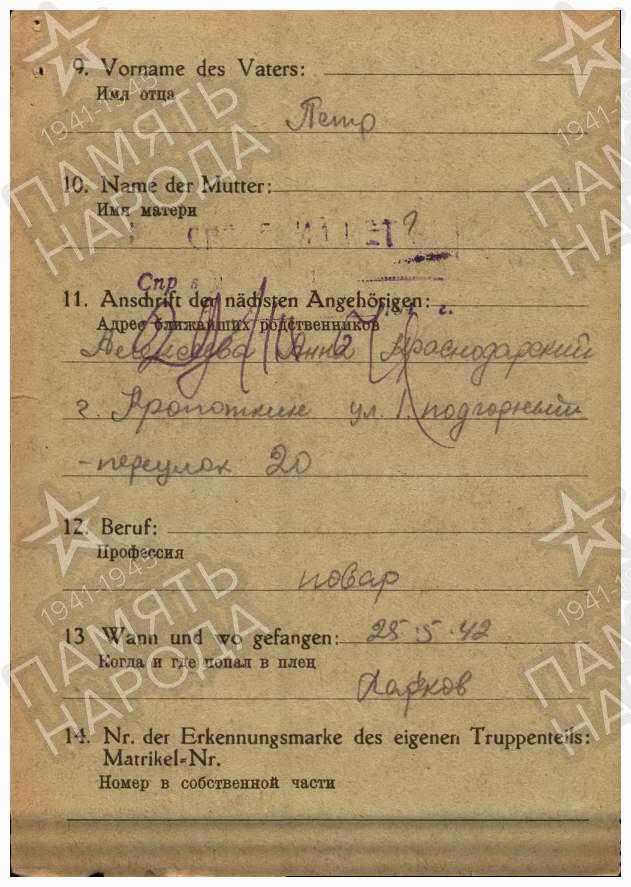 9. Vorname des Vaters:
Имя отца
Петр
10. Name der Mutter:
Имя матери
?
Спр
11. Anschrift der nächsten Angehörigen:
Адрес ближайших родственников
Анна Краснодарский
г. Кропоткин ул. 1. подгорный
-переулок 20
12. Beruf:
Профессия
повар
13 Wann und wo gefangen: 25.5.42
Когда и где попал в плен
Харков
14. Nr. der Erkennungsmarke des eigenen Truppenteils:
Matrikel-Nr.
Номер в собственной части
1941-1945
ПАМЯТЬ
НАРОДА
1941-1945
ПАМЯТЬ
НАРОДА
1941-1945
ПАМЯТЬ
НАРОДА
1941-1945
ПАМЯТЬ
НАРОДА